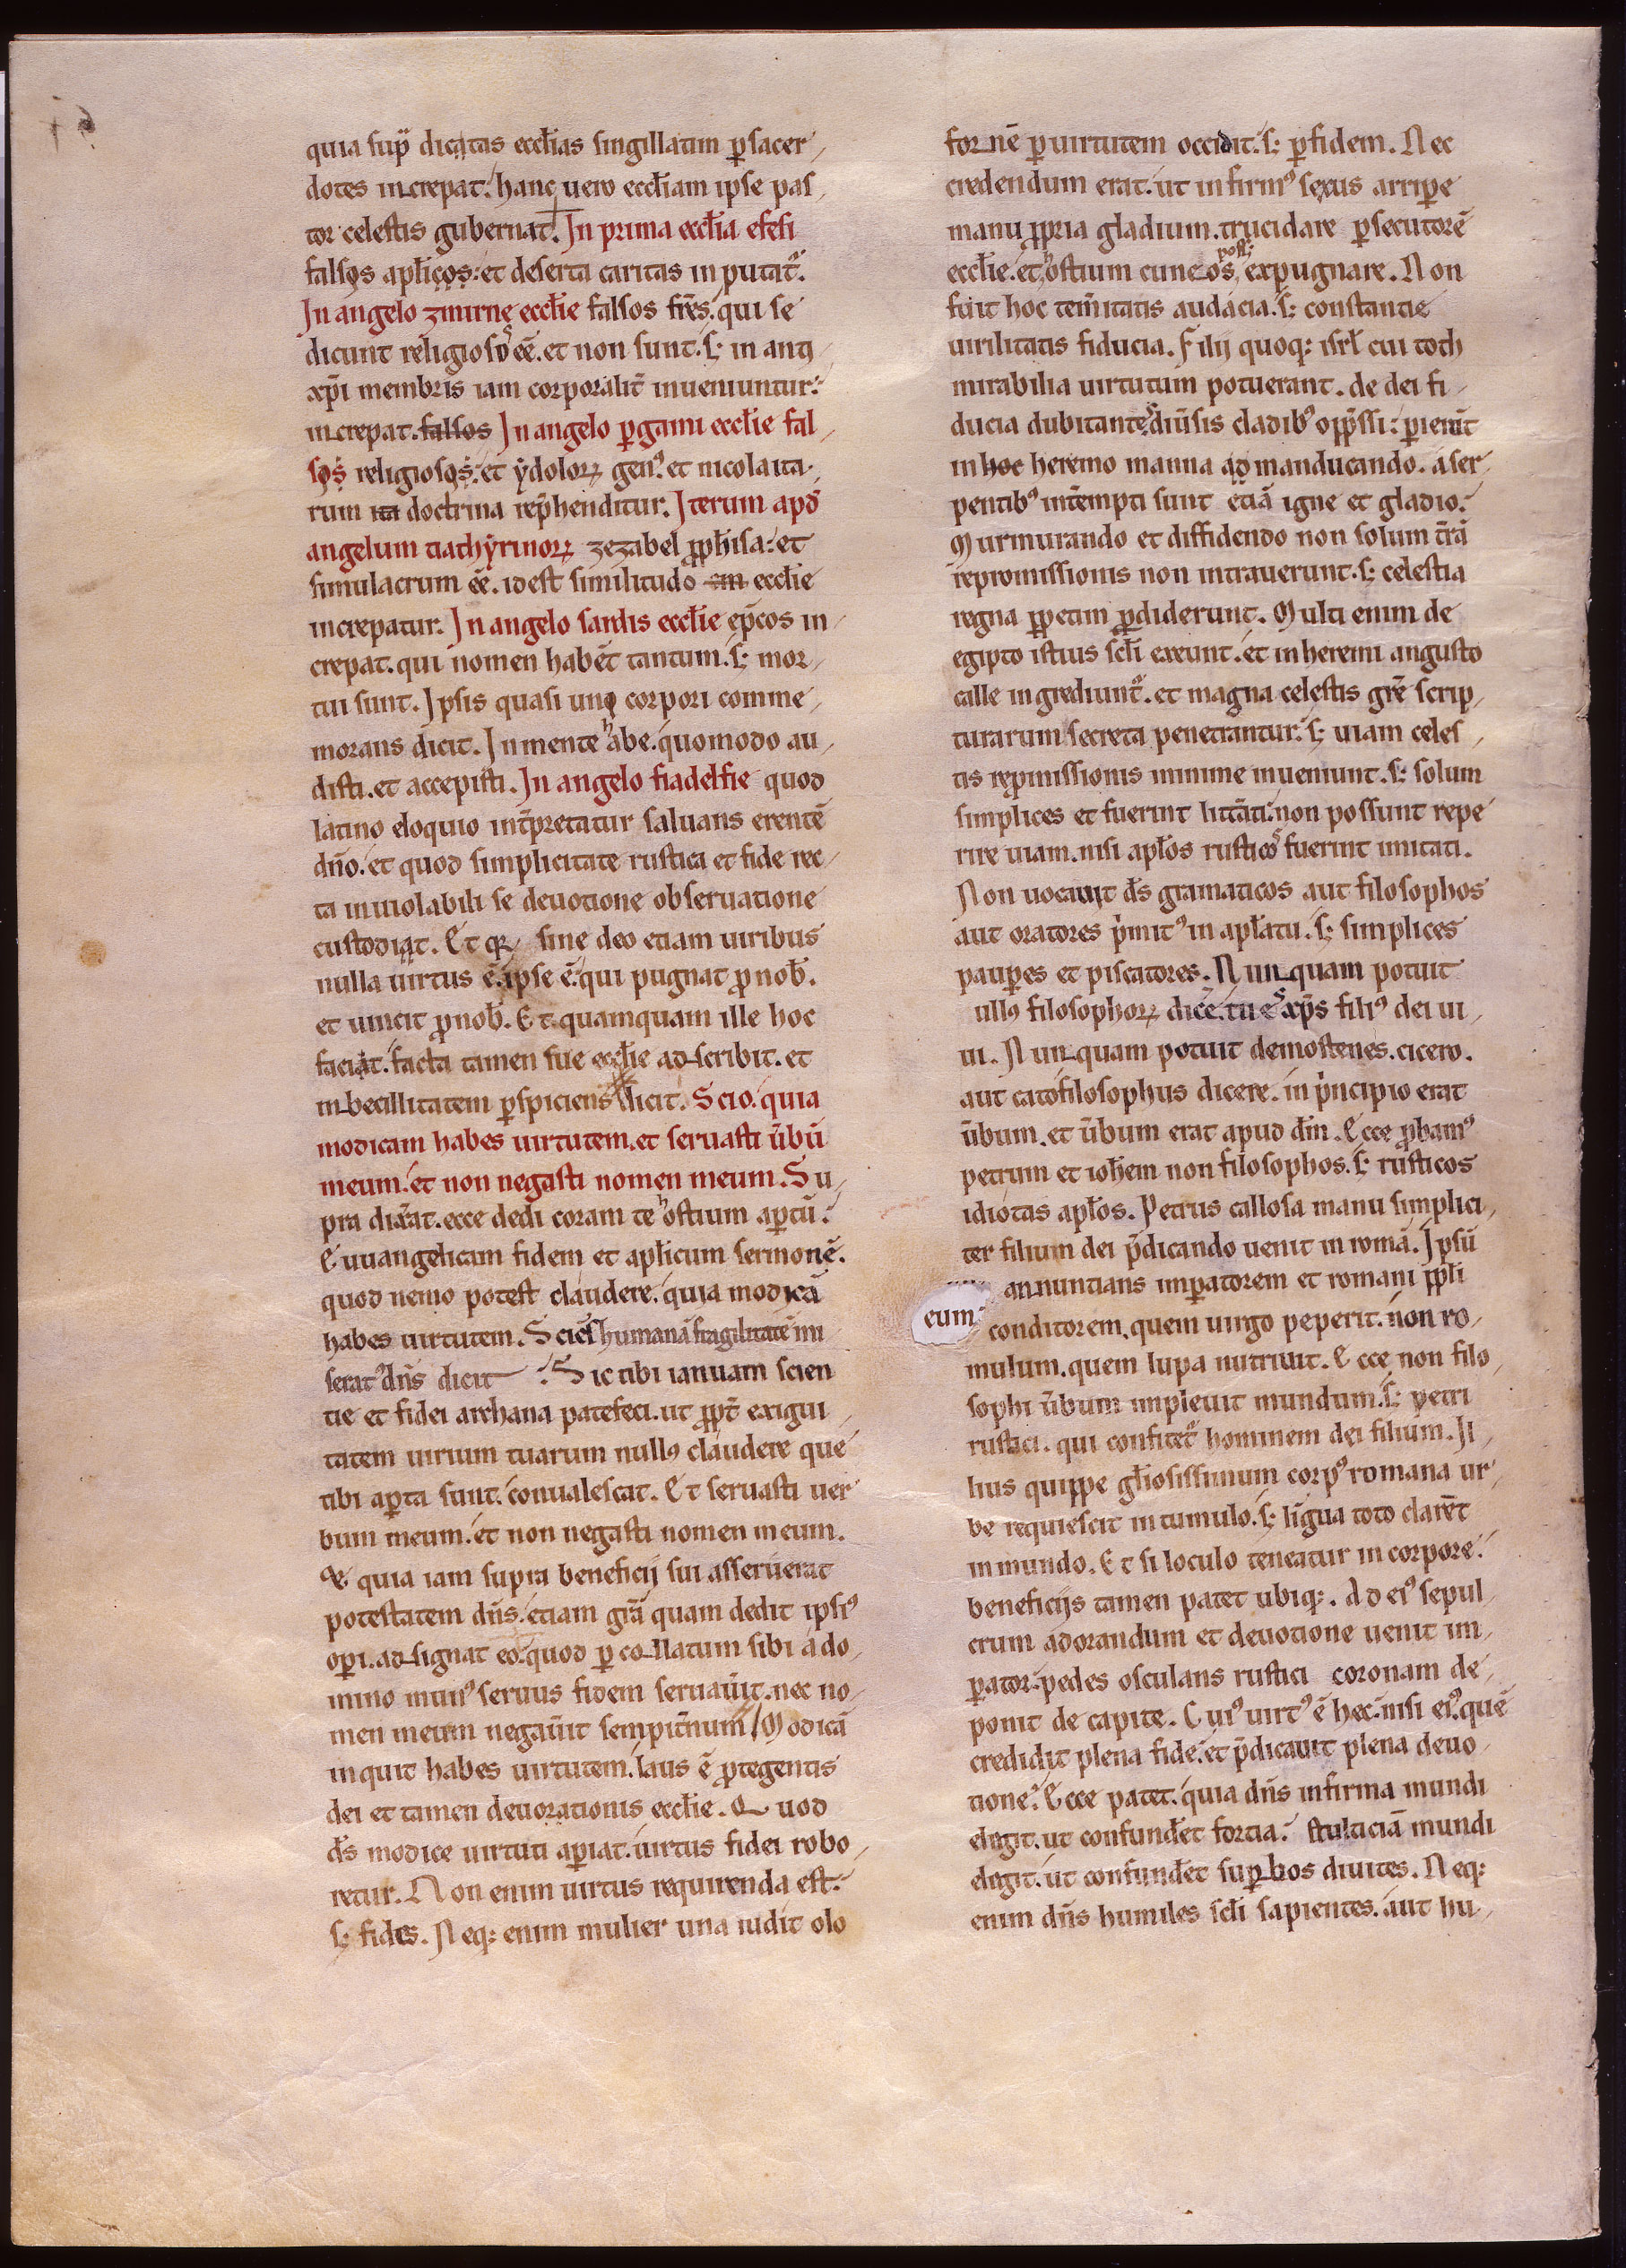 quia sup̄ dicatas eccl̄ias singillatim ꝑ sacer,
dotes increpat. hanc uero eccl̄iam ipse pas,
tor celestis gubernat. In prima eccl̄ia efesi
falsos apl̄icos: et deserta caritas in putat᷑.
In angelo zmirnę eccl̄ie falsos fr̄es. qui se
dicunt religiosos eē. et non sunt. sꝫ in anti
xp̄i membris iam corporalit̄ inueniuntur:
increpat. falsos In angelo ꝑgami eccl̄ie fal,
sos religiosos: et ẏdoloꝝ genꝰ et nicolaita,
rum ita doctrina rep̄henditur. Iterum apd̄
angelum tiathẏrinoꝝ zezabel ꝓph̄isa: et
simulacrum eē. id est similitudo eccl̄ie
increpatur. In angelo sardis eccl̄ie ep̄cos in
crepat. qui nomen habēt tantum. sꝫ mor,
tui sunt. Ipsis quasi uno corpori comme,
morans dicit. In mente habe. quomodo au,
disti. et accepisti. In angelo fiadelfie quod
latino eloquio int̄pretatur saluans erentē
dn̄o. et quod simplicitate rustica et fide rec,
ta inuiolabili se deuotione obseruatione
custodiat. Et qꝛ sine deo etiam uiribus
nulla uirtus ē. ipse ē. qui pugnat ꝓ nob̄.
et uincit ꝓ nob̄. Et quamquam ille hoc
faciat. facta tamen sue eccl̄ie ad scribit. et
inbecillitatem ꝑspiciens dicit. Scio. quia
modicam habes uirtutem. et seruasti ūbū
meum. et non negasti nomen meum. Su,
pra dix̄at. ecce dedi coram te hostium aꝑtū.
Euuangelicam fidem et apl̄icum sermonē.
quod nemo potest claudere. quia modicā
habes uirtutem. Sciēs humanā fragilitatē mi
seratꝰ dn̄s dicit. Sic tibi ianuam scien
tie et fidei archana patefeci. ut ꝓpt̄ exigui,
tatem uirium tuarum nullꝰ claudere que
tibi aꝑta sunt. conualescat. Et seruasti uer
bum meum. et non negasti nomen meum.
quia iam supra beneficij sui asseruerat
potestatem dn̄s. etiam grā quam dedit ipsiꝰ
oꝑi. ad signat eo. quod ꝑ collatum sibi a do,
mino munꝰ seruus fidem seruauit. nec no,
men meum negauit sempit̄num. Modicā
inquit habes uirtutem. laus ē ꝓtegentis
dei et tamen deuorationis eccl̄ie. Quod
ds̄ modice uirtuti aꝑiat. uirtus fidei robo,
retur. Non enim uirtus requirenda est.
sꝫ fides. Neqꝫ enim mulier una iudit olo
fornē ꝑ uirtutem occidit. sꝫ ꝑ fidem. Nec
credendum erat. ut infirmꝰ sexus arriꝑe
manu ꝓpria gladium. trucidare ꝑsecutorē
eccl̄ie. et hostium cuneos post expugnare. Non
fuit hoc tem̄itatis audacia. sꝫ constantie
uirilitatis fiducia. Filij quoqꝫ isrl̄ cui toth
mirabilia uirtutum potuerant. de dei fi,
ducia dubitantes diūsis cladibꝰ opp̄ssi: ꝑierūt
in hoc heremo manna ad manducando. a ser,
pentibꝰ int̄empti sunt etiā igne et gladio.
Murmurando et diffidendo non solum t̄rā
repromissionis non intrauerunt. sꝫ celestia
regna ꝑpetim ꝑdiderunt. Multi enim de
egipto istius scl̄i exeunt. et in heremi angusto
calle ingrediunt᷑. et magna celestis gr̄e scrip,
turarum secreta penetrantur. sꝫ uiam celes,
tis rep̄missionis minime inueniunt. sꝫ solum
simplices et fuerint litt̄ati. non possunt repe
rire uiam. nisi apl̄os rusticos fuerint imitati.
Non uocauit ds̄ gramaticos aut filosophos
aut oratores p̄mitꝰ in apl̄atu. sꝫ simplices
pauꝑes et piscatores. Nunquam potuit
ullꝰ filosophoꝝ dicē. tu es xp̄s filiꝰ dei ui,
ui. Nunquam potuit demostenes. cicero.
aut cato filosophus dicere. in p̄ncipio erat
ūbum. et ūbum erat apud dm̄. Ecce ꝓbamꝰ
petrum et ioh̄em non filosophos. sꝫ rusticos
idiotas apl̄os. Petrus callosa manu simplici,
ter filium dei p̄dicando uenit in romā. Ipsū
annuntians imꝑatorem et romani ppl̄i
eum conditorem. quem uirgo peperit. non ro,
mulum. quem lupa nutriuit. Ecce non filo,
sophi ūbum impleuit mundum. sꝫ petri
rustici. qui confitet᷑ hominem dei filium. Il,
lius quippe gl̄iosissimum corpꝰ romana ur,
be requiescit in tumulo. sꝫ lingua toto clarēt
in mundo. Et si loculo teneatur in corpore.
beneficijs tamen patet ubiqꝫ. Ad eiꝰ sepul,
crum adorandum et deuotione uenit im,
ꝑator. pedes osculans rustici coronam de,
ponit de capite. Cuiꝰ uirtꝰ ē hec. nisi eiꝰ. quē
credidit plena fide. et p̄dicauit plena deuo,
tione. Ecce patet. quia dn̄s infirma mundi
elegit. ut confundēt fortia. stulticiā mundi
elegit. ut confundēt suꝑbos diuites. Neqꝫ
enim dn̄s humiles scl̄i sapientes. aut hu,